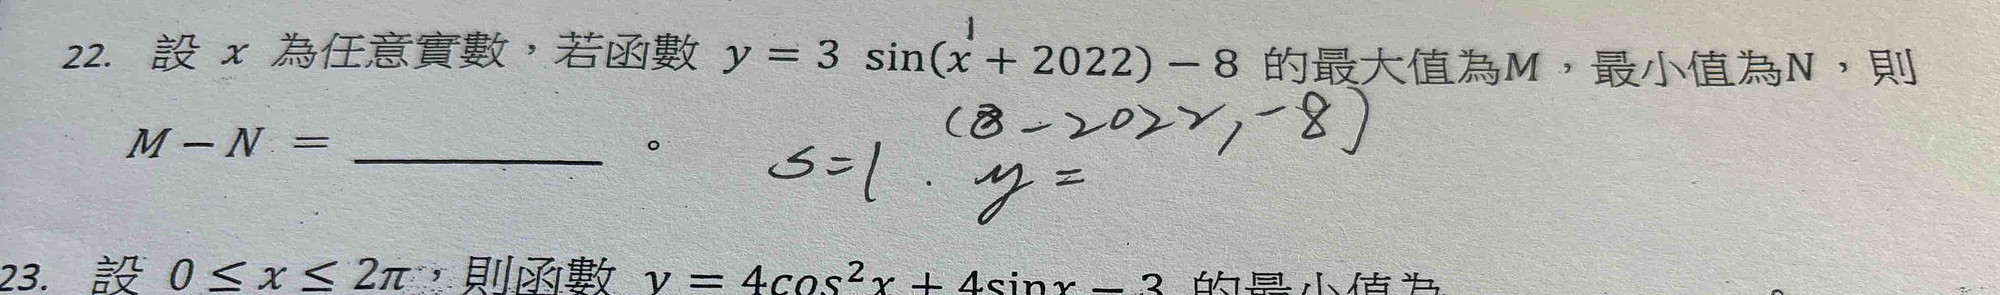 22. 設 x 為任意實數，若函數 y = 3 sin(x + 2022) − 8 的最大值為M，最小值為N，則
M − N = ________ 。
(3-2022, -8)
s=1. y=
23. 設 0 ≤ x ≤ 2π，則函數 y = 4cos²x + 4sinx − 3 的最小值為